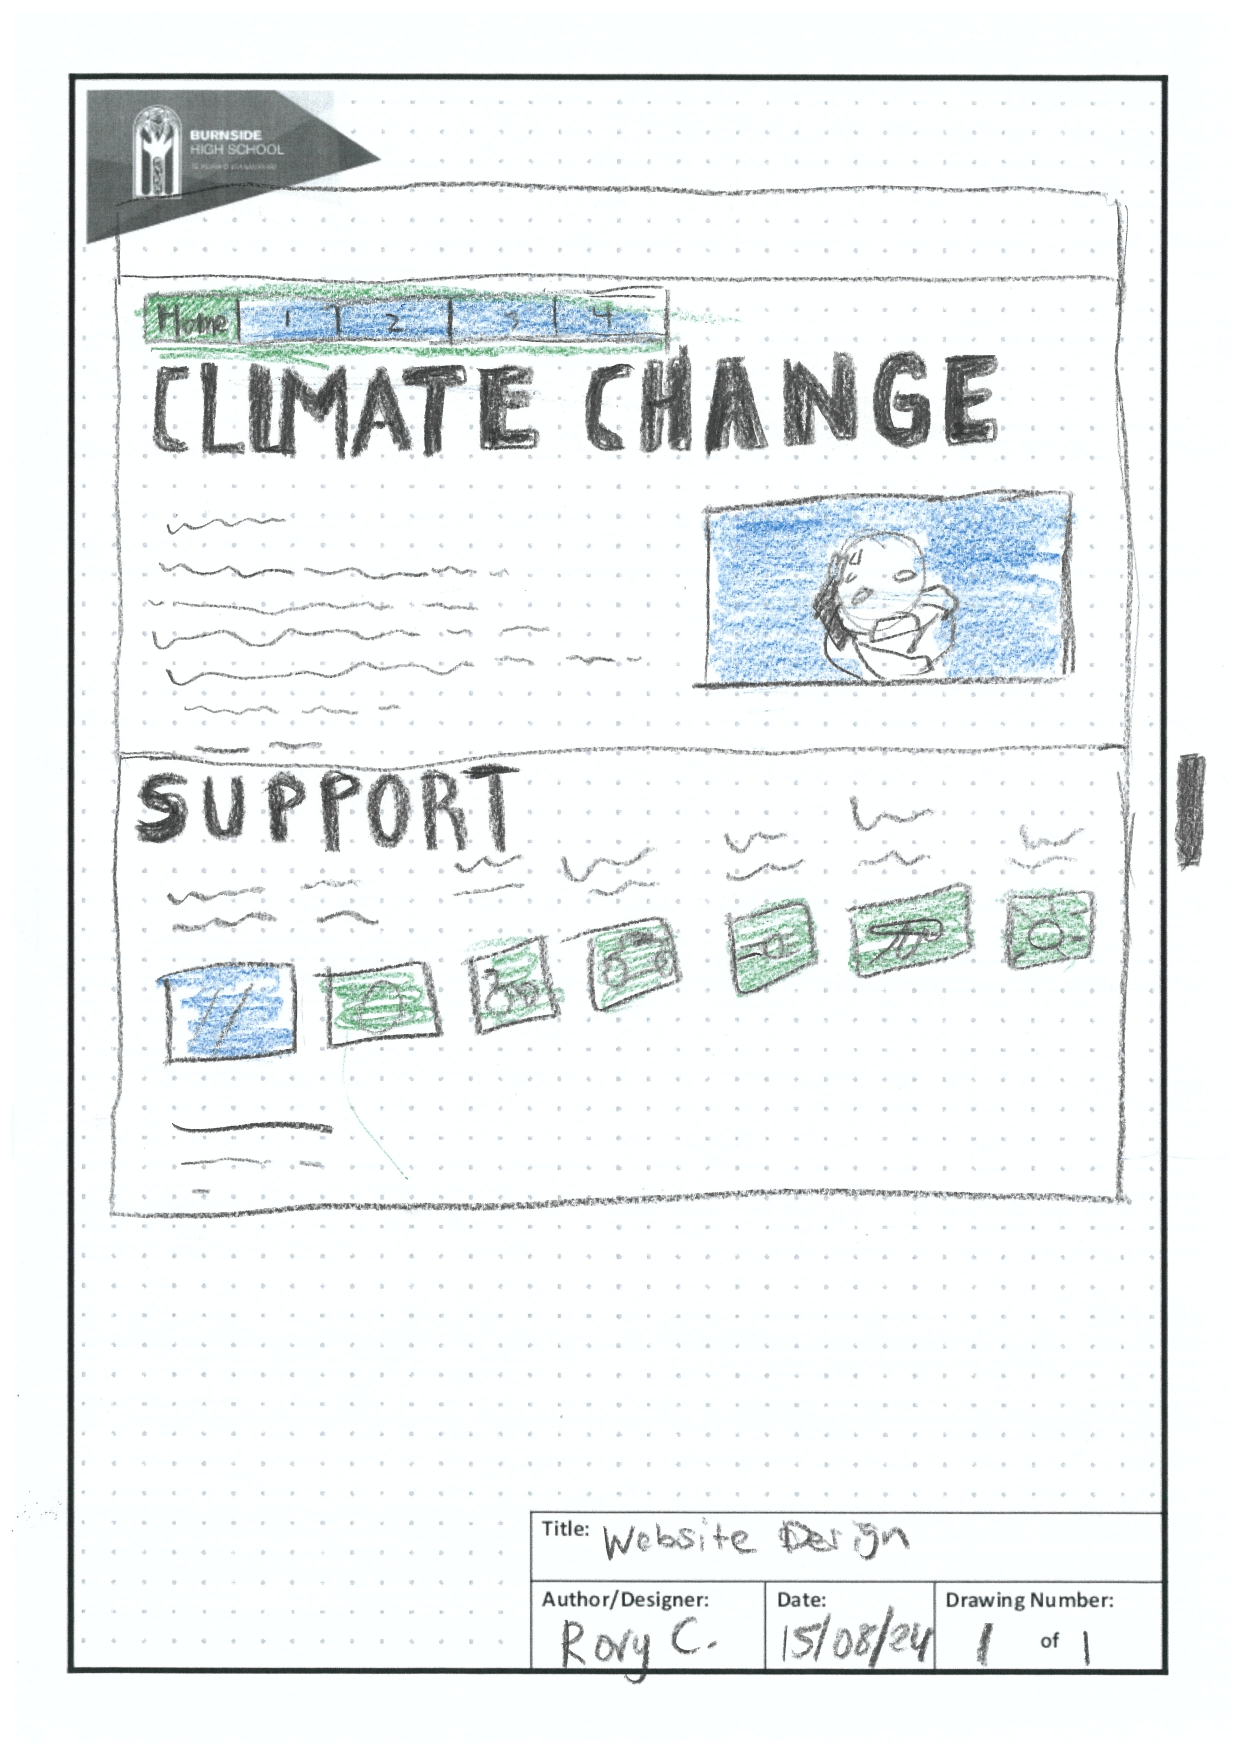 BURNSIDE
HIGH SCHOOL
Home 1 2 3 4
CLIMATE CHANGE
SUPPORT
Title: Website Design
Author/Designer: Date: Drawing Number:
Rory C. 15/08/24 1 of 1